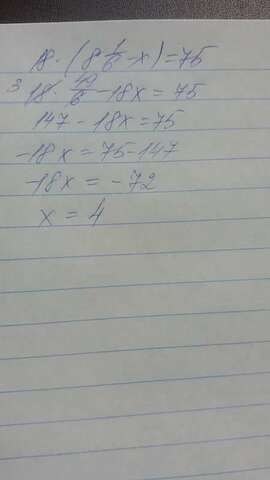 18 · (8 1/6 - x) = 75
3 18 · 49/6 - 18x = 75
147 - 18x = 75
-18x = 75 - 147
-18x = -72
x = 4